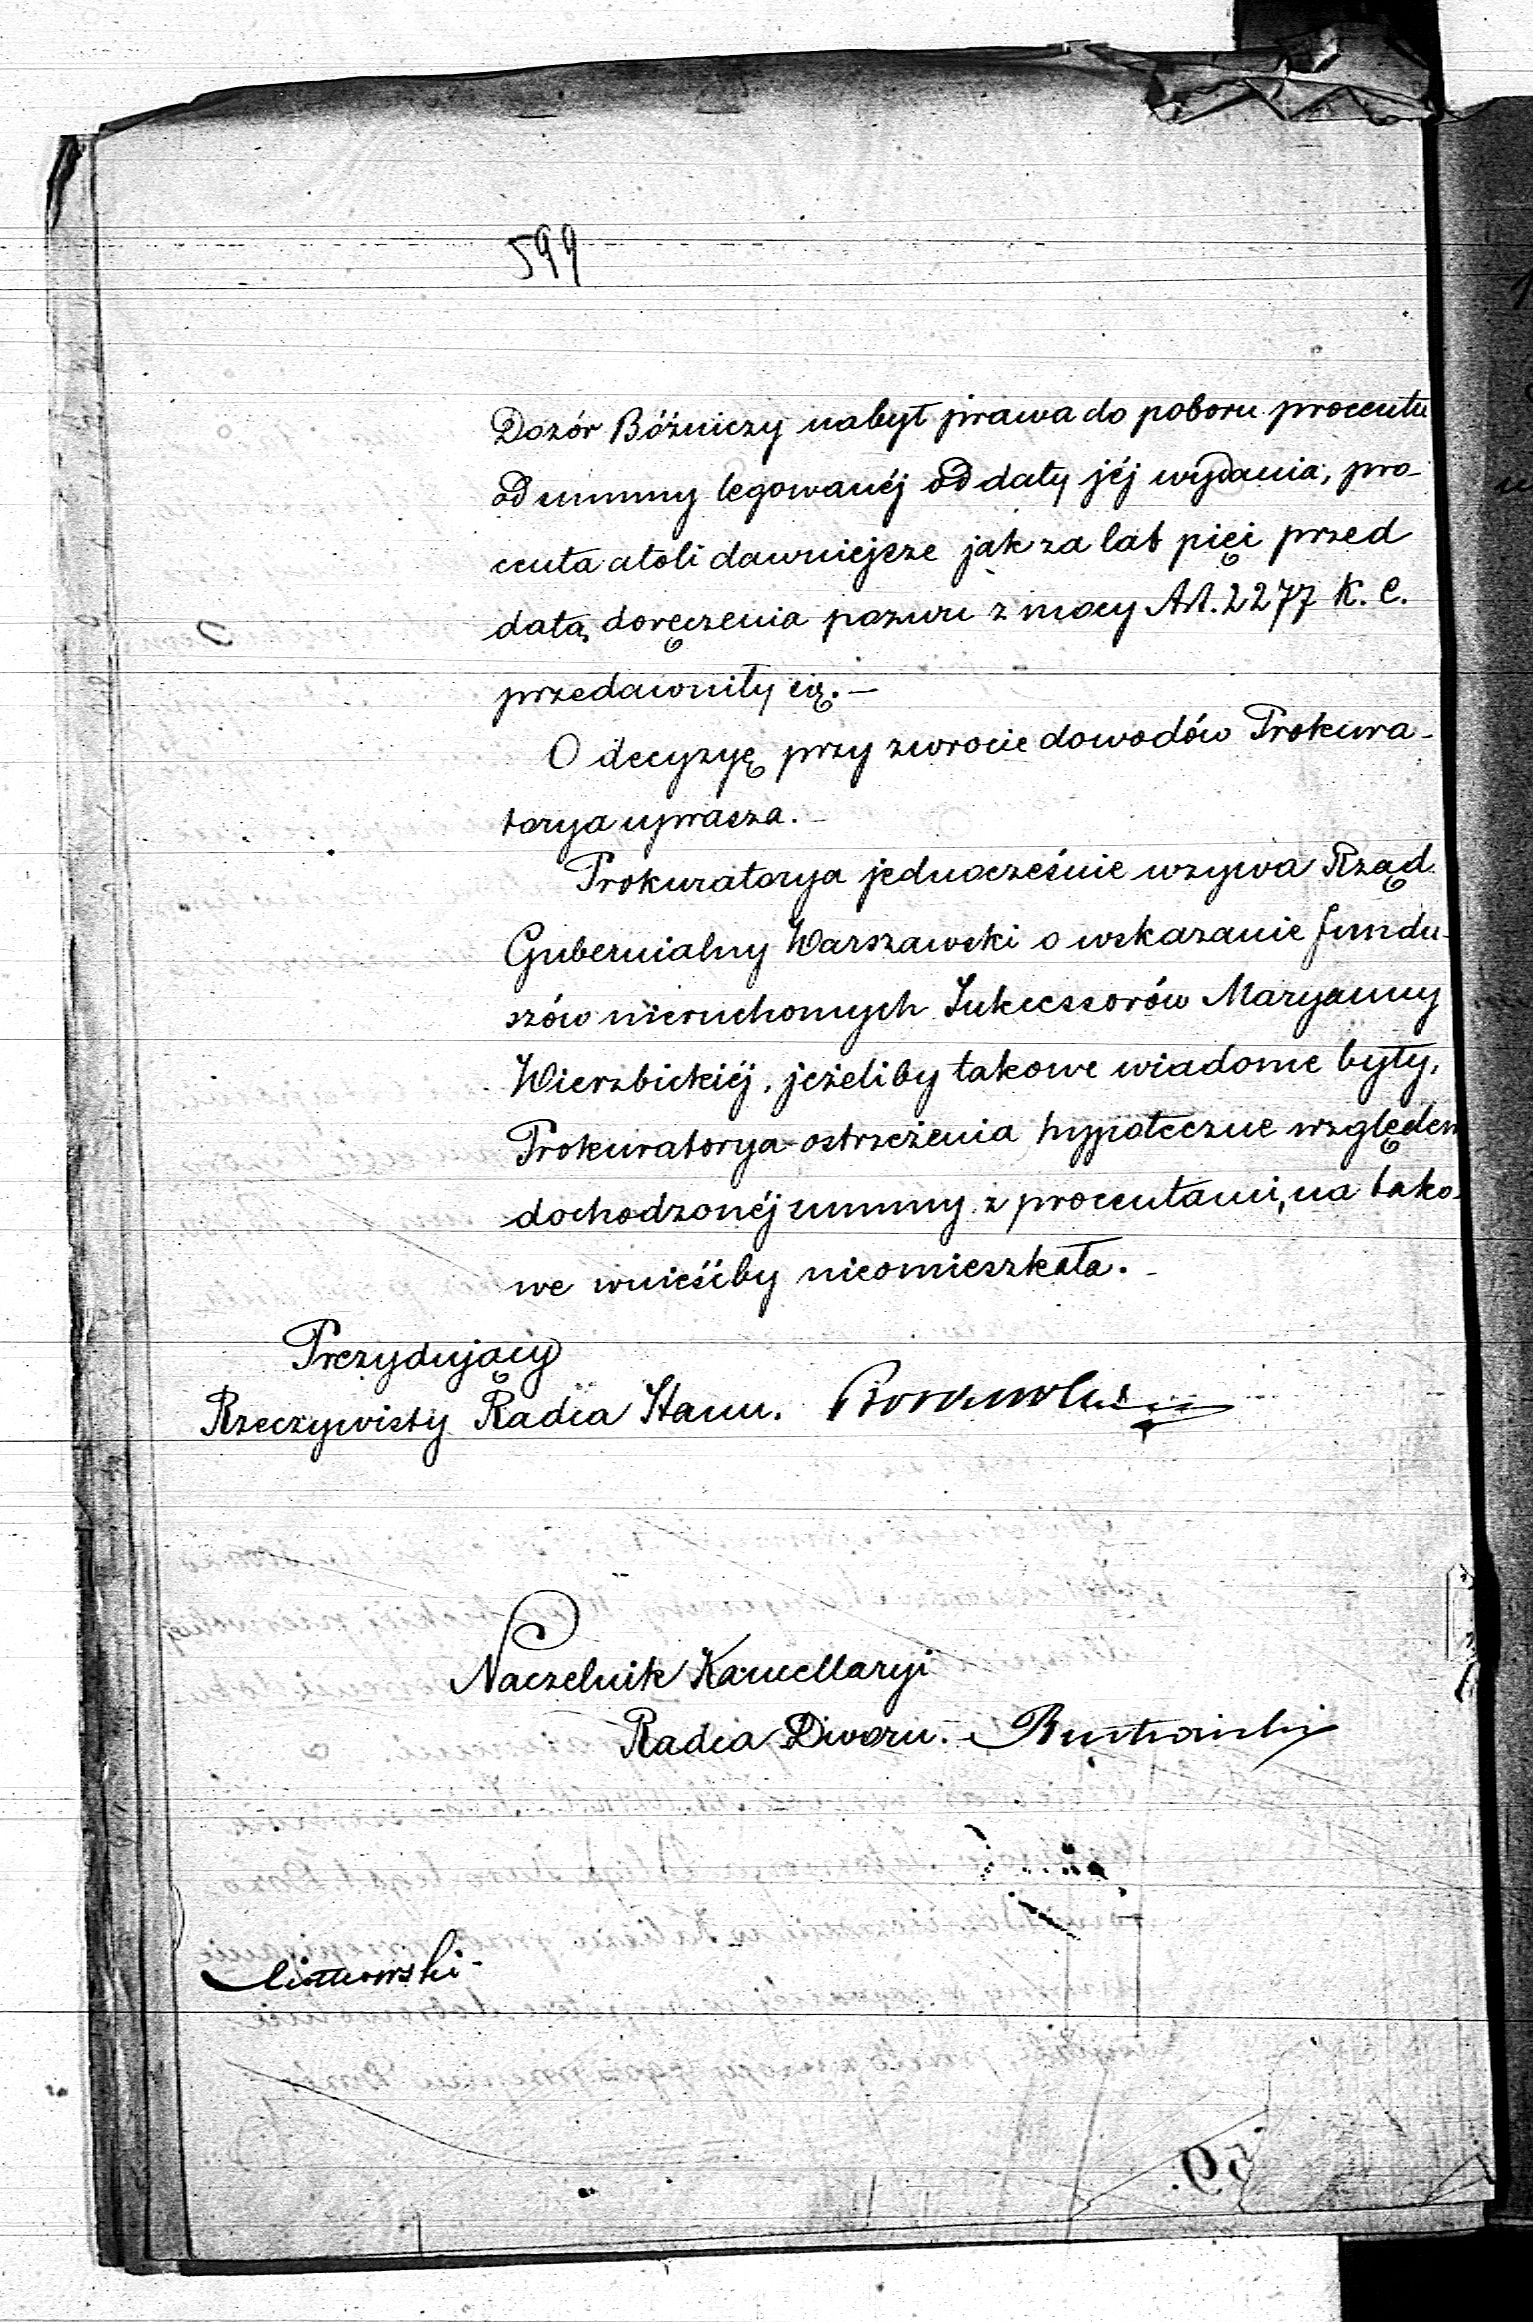 599
Dozór Bóżniczy nabył prawa do poboru procentu
od summy legowanéj od daty jéj wydania, pro-
centa atoli dawniejsze jak za lat pięć przed
datą doręczenia pozwu z mocy Art. 2277 K. C.
przedawniły się. —
O decyzyę przy zwrocie dowodów Prokura-
torya uprasza. —
Prokuratorya jednocześnie wzywa Rząd
Gubernialny Warszawski o wskazanie fundu-
szów nieruchomych Sukcessorów Maryanny
Wierzbickiéj, jeżeliby takowe wiadome były,
Prokuratorya ostrzeżenia hypoteczne względem
dochodzonéj summy z procentami, na tako-
we wnieśćby nieomieszkała. —
Prezydujący
Rzeczywisty Radca Stanu.
Naczelnik Kancellaryi
Radca Dworu.